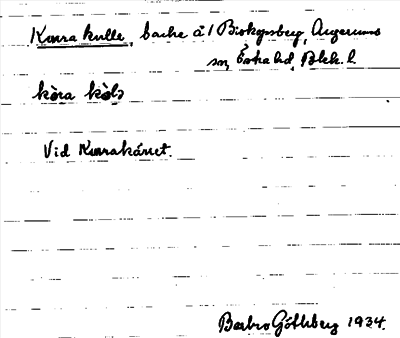 Kvarnakulle, backe å 1 Biskopsberg, Augerums
sn, Östra hd, Blek. l.
kòra kòlɔ
Vid Kvarnakärret.
Barbro Götheberg 1934.